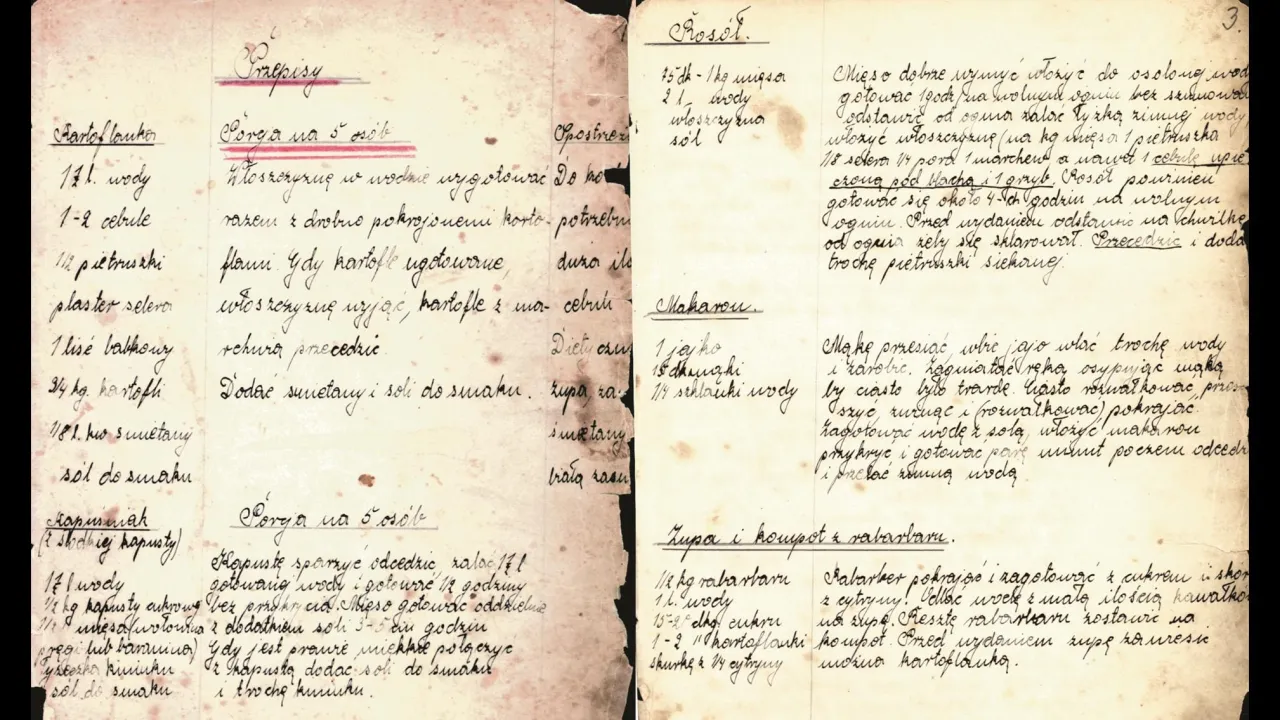 Przepisy
Kartoflanka
1½ l. wody
1-2 cebule
1/2 pietruszki
plaster selera
1 liść bobkowy
3/4 kg. kartofli
1/8 l. kw śmietany
sól do smaku
Porcja na 5 osób
Włoszczyznę w wodzie wygotować
razem z drobno pokrojonemi karto-
flami. Gdy kartofle ugotowane,
włoszczyznę wyjąć, kartofle z ma-
rchwią przecedzić.
Dodać śmietany i soli do smaku.
Spostrze
Do
potrzebn
duża ilo
cebuli
Diety
zupa, za-
śmietany
białą zasm
Kapuśniak
(z słodkiej kapusty)
1½ l wody
1/2 kg kapusty cukrowej
1/2 " mięsa (wołowina
pręgi lub baranina)
łyżeczka kminku
sól do smaku
Porcja na 5 osób
Kapustę sparzyć odcedzić, zalać 1½ l
gotowanej wody i gotować 1/2 godziny
bez przykrycia. Mięso gotować oddzielnie
z dodatkiem soli godzin
Gdy jest prawie miękkie połączyć
z kapustą dodać soli do smaku
i trochę kminku.
3.
Rosół.
75 dk - 1 kg mięsa
2 l. wody
włoszczyzna
sól
Mięso dobrze wymyć włożyć do osolonej wod
gotować 1 godz na wolnym ogniu bez szumowa
odstawić od ognia zalać łyżką zimnej wody,
włożyć włoszczyznę (na kg mięsa 1 pietruszka
1/8 selera 1/4 pora 1 marchew, a nawet 1 cebulę upie-
czoną pod blachą i 1 grzyb. Rosół powinien
gotować się około 4-ch godzin na wolnym
ogniu. Przed wydaniem odstawić na chwilkę
od ognia żeby się sklarował. Przecedzić i doda
trochę pietruszki siekanej.
Makaron.
1 jajko
15 dk mąki
1/4 szklanki wody
Mąkę przesiać, wbić jajo wlać trochę wody
i zarobić. Zagniatać ręką osypując mąką
by ciasto było twarde. Ciasto rozwałkować, przes-
szyć, zwinąć i (rozwałkować) pokrajać.
Zagotować wodę z solą, włożyć makaron
przykryć i gotować parę minut poczem odcedzi
i przelać zimną wodą.
Zupa i kompot z rabarbaru.
1/2 kg rabarbaru
1 l. wody
15-2 dkg cukru
1-2 " kartoflanki
skurkę z 1/4 cytryny
Rabarber pokrajać i zagotować z cukrem i skór
z cytryny! Odlać wodę z małą ilością kawałko
na zupę. Resztę rabarbaru zostawić na
kompot. Przed wydaniem zupę zawiesić
można kartoflanką.